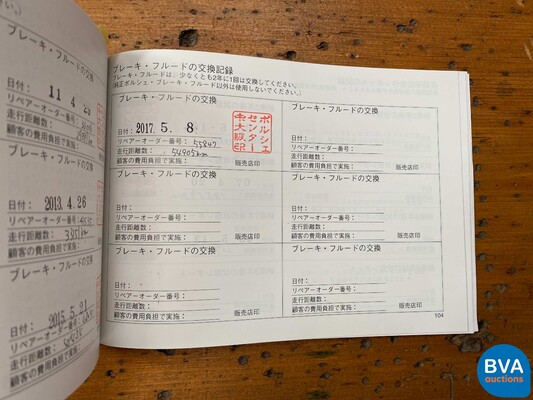 ブレーキ・フルードの交換
日付：11 4 2
リペアーオーダー番号：
走行距離数：
顧客の費用負担で実施：
ブレーキ・フルードの交換
日付：2013.4.26
リペアーオーダー番号：
走行距離数：
顧客の費用負担で実施：
ブレーキ・フルードの交換
日付：2015.5.21
リペアーオーダー番号：
走行距離数：
顧客の費用負担で実施：
ブレーキ・フルードの交換記録
ブレーキ・フルードは、少なくとも2年に1回は交換してください。
（純正ポルシェ・ブレーキ・フルード以外は使用しないでください。）
ブレーキ・フルードの交換
日付：2017.5.8
リペアーオーダー番号：55847
走行距離数：54905km
顧客の費用負担で実施：
販売店印
ポルシェ
センター
中大阪印
ブレーキ・フルードの交換
日付：
リペアーオーダー番号：
走行距離数：
顧客の費用負担で実施：
販売店印
ブレーキ・フルードの交換
日付：
リペアーオーダー番号：
走行距離数：
顧客の費用負担で実施：
販売店印
ブレーキ・フルードの交換
日付：
リペアーオーダー番号：
走行距離数：
顧客の費用負担で実施：
販売店印
ブレーキ・フルードの交換
日付：
リペアーオーダー番号：
走行距離数：
顧客の費用負担で実施：
販売店印
ブレーキ・フルードの交換
日付：
リペアーオーダー番号：
走行距離数：
顧客の費用負担で実施：
販売店印
104
BVA
auctions